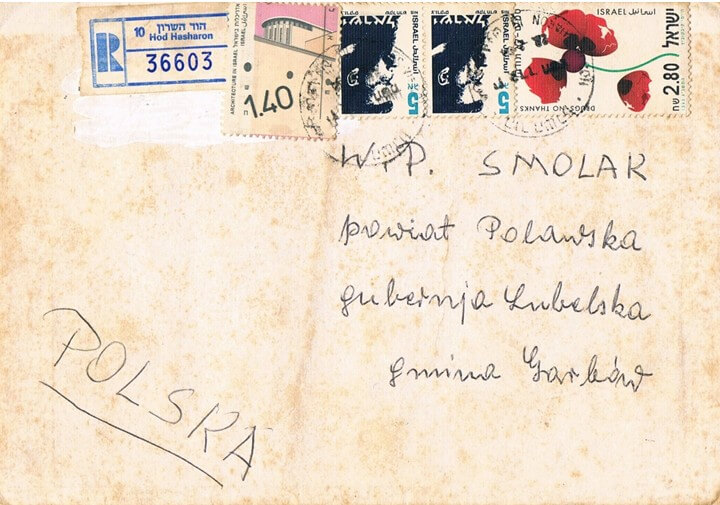 10 הוד השרון
Hod Hasharon
R 36603
ARCHITECTURE IN ISRAEL
1.40
5
5
ISRAEL اسرائيل
ישראל
2.80
DRUGS-NO THANKS
W.P. SMOLAR
powiat Polawska
gubernja Lubelska
gmina Garbów
POLSKA